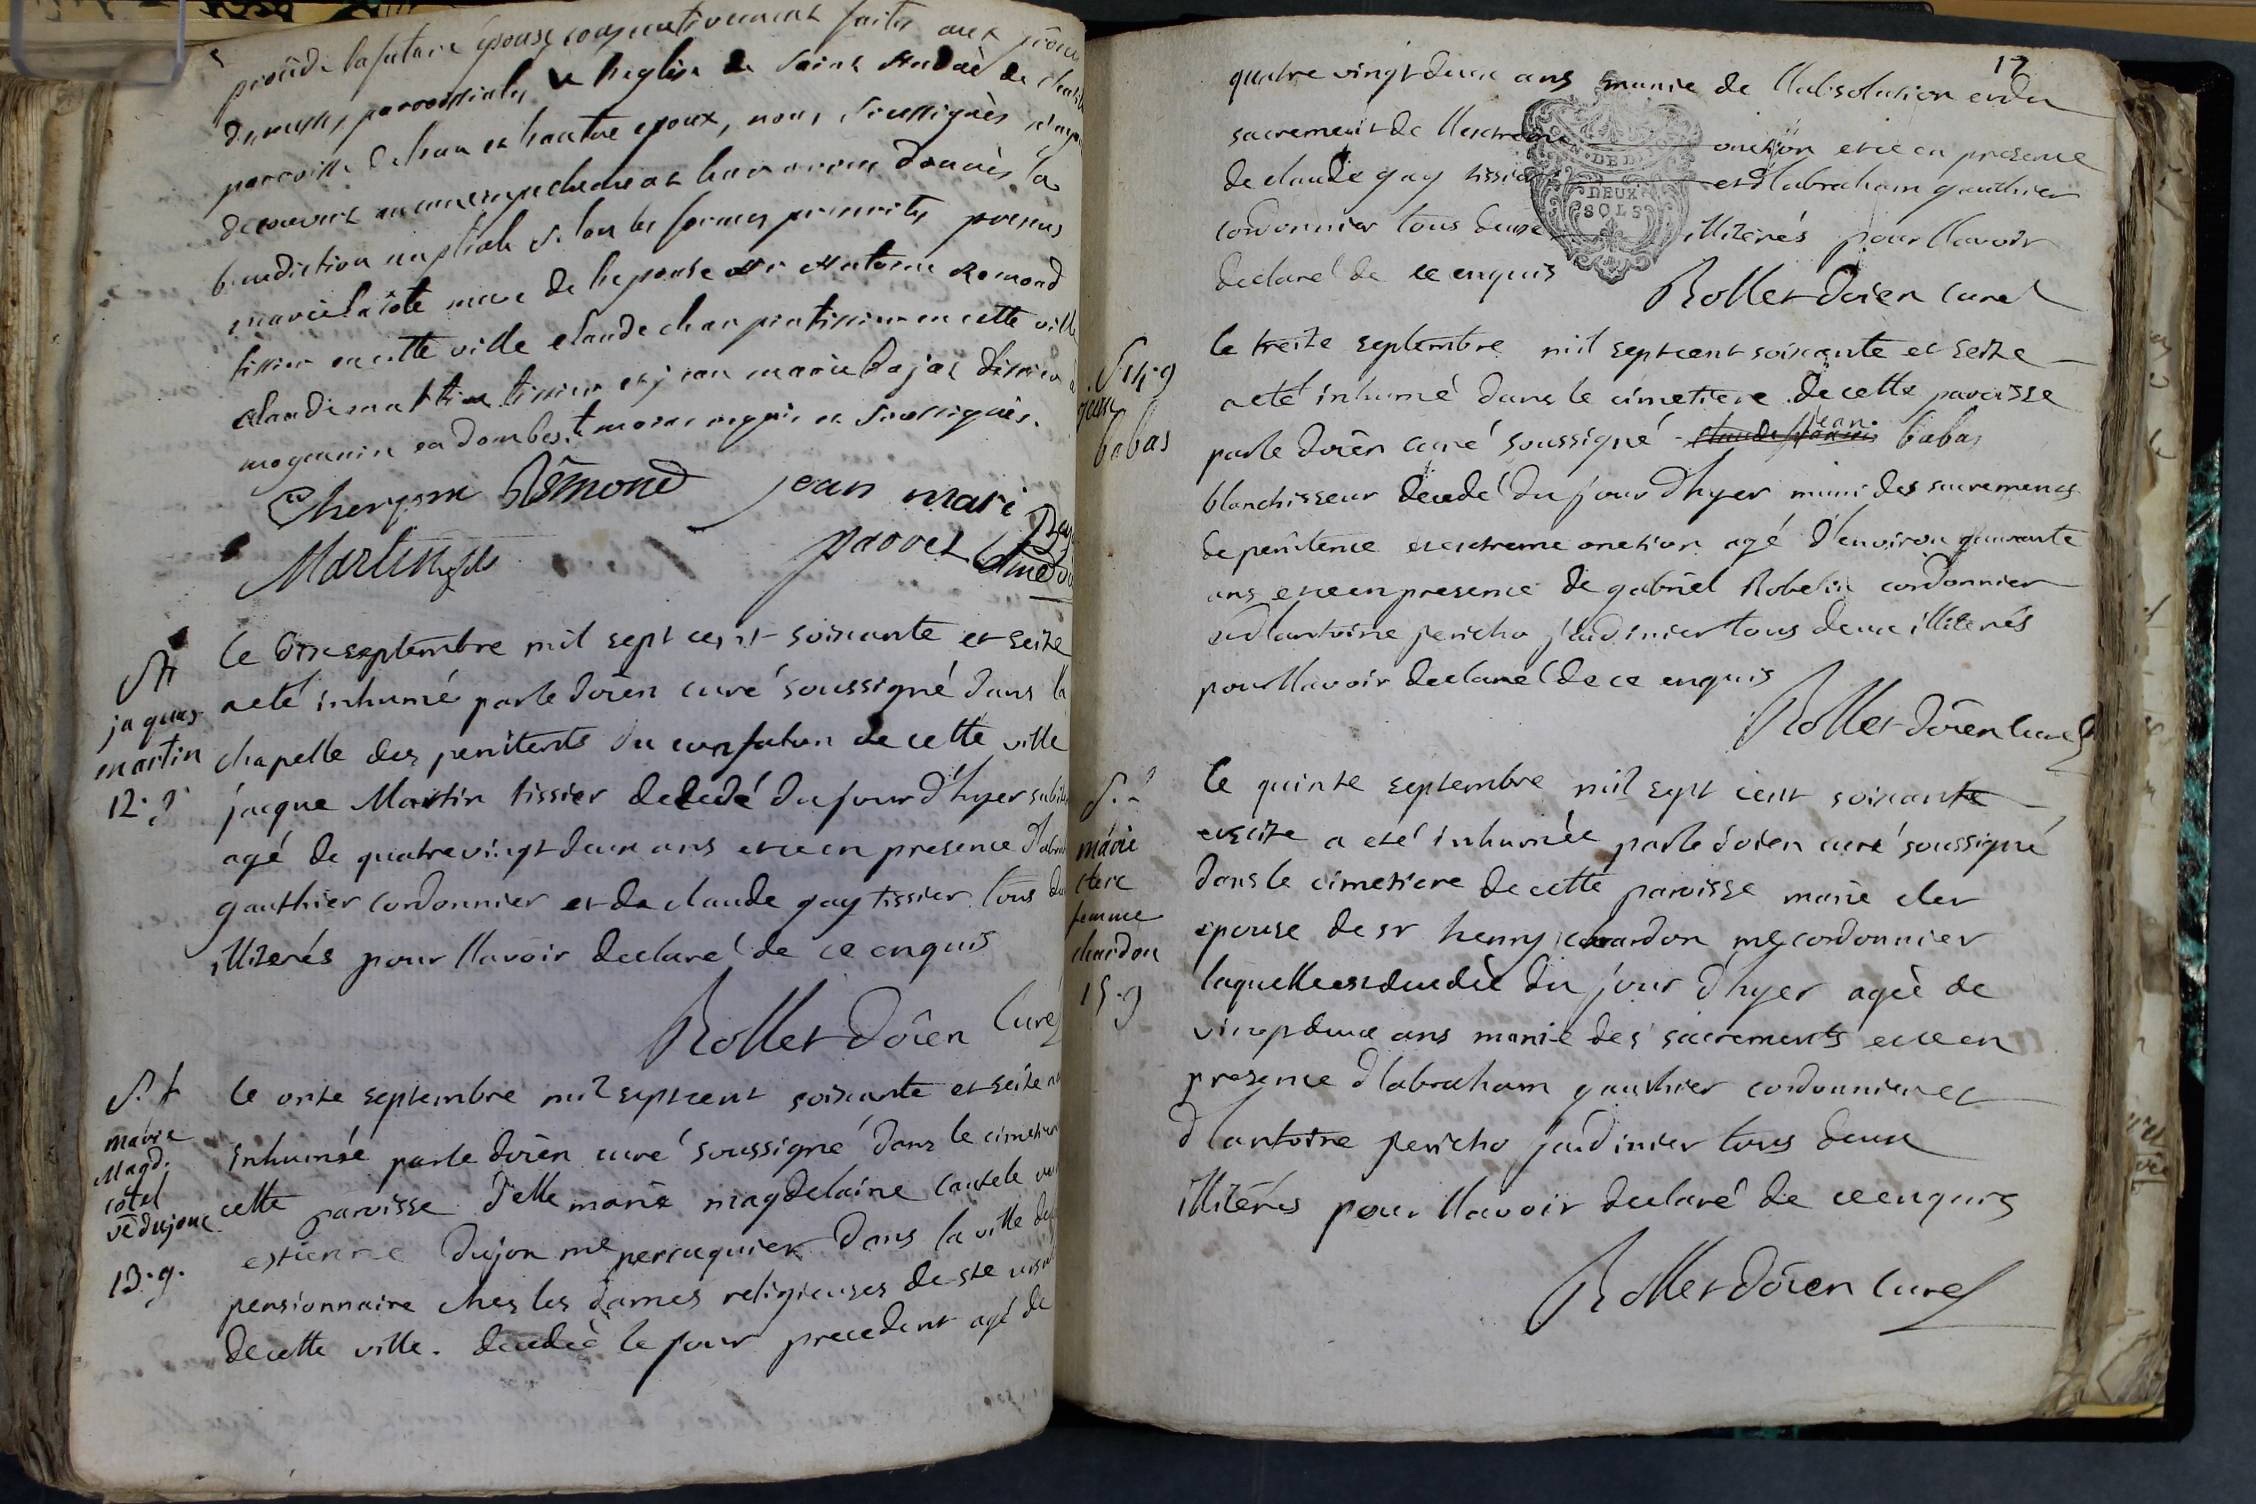 de la future epouse consecutivement faites aux prône
de messes paroissiales de leglise de Saint André de
paroisse de l'un et l'autre epoux, nous soussignés
decouvert aucun empechement leur avons donnés la
benediction nuptiale selon les formes prescrites presens
marie la côte mere de lepouse Mr Antoine Remond
tissier en cette ville claude champin tissier en cette ville
claude martin tissier et jean marie Dajat tissier
mogenein en dombes temoins requis et soussignés.
Remond jean mari
Martin fils parret
St
jaques
martin
12. 9
le dix septembre mil sept cent soixante et seize
a eté inhumé par le doïen curé soussigné dans la
chapelle des penitents du confalon de cette ville
jacque Martin tissier decedé du jour d'hyer
agé de quatrevingt deux ans et ce en presence
gauthier cordonnier et de claude gay tissier tous
illiterés pour llavoir declaré de ce enquis
Rollet doïen curé
S.t
marie
Magd.
côtel
ve dujone
13. 9.
le onze septembre mil sept cent soixante et seize
inhumée par le doïen curé soussigné dans le cimetier
cette paroisse delle marie magdelaine
estienne dujon me perruquier dans la ville
pensionnaire ches les dames religieuses de ste
de cette ville. decedée le jour precedent agé de
17
quatre vingt deux ans munie de llabsolution et du
sacrement de llextreme onction et ce en presence
de claude gay tissier et dlabraham gauthier
cordonnier tous deux illiterés pour llavoir
declaré de ce enquis
DEUX
SOLS
Rollet doïen curé
14. 9
jean
babas
le treize septembre mil sept cent soixante et seize
a eté inhumé dans le cimetiere de cette paroisse
par le doïen curé soussigné jean babas
blanchisseur decedé du jour d'hyer muni des sacremens
de penitence et extreme onction agé d'environ quarante
ans et ce en presence de gabriel Robelin cordonnier
et dlantoine pericho jardinier tous deux illiterés
pour llavoir declaré de ce enquis
Rollet doïen curé
marie
clerc
femme
chardon
15. 9
le quinze septembre mil sept cent soixante
et seize a eté inhumée par le doïen curé soussigné
dans le cimetiere de cette paroisse marie cler
epouse de sr henry chardon me cordonnier
laquelle est decedée du jour d'hyer agée de
vingt deux ans munie des sacrements et ce en
presence dlabraham gauthier cordonnier et
dlantoine pericho jardinier tous deux
illiterés pour llavoir declaré de ce enquis
Rollet doïen curé